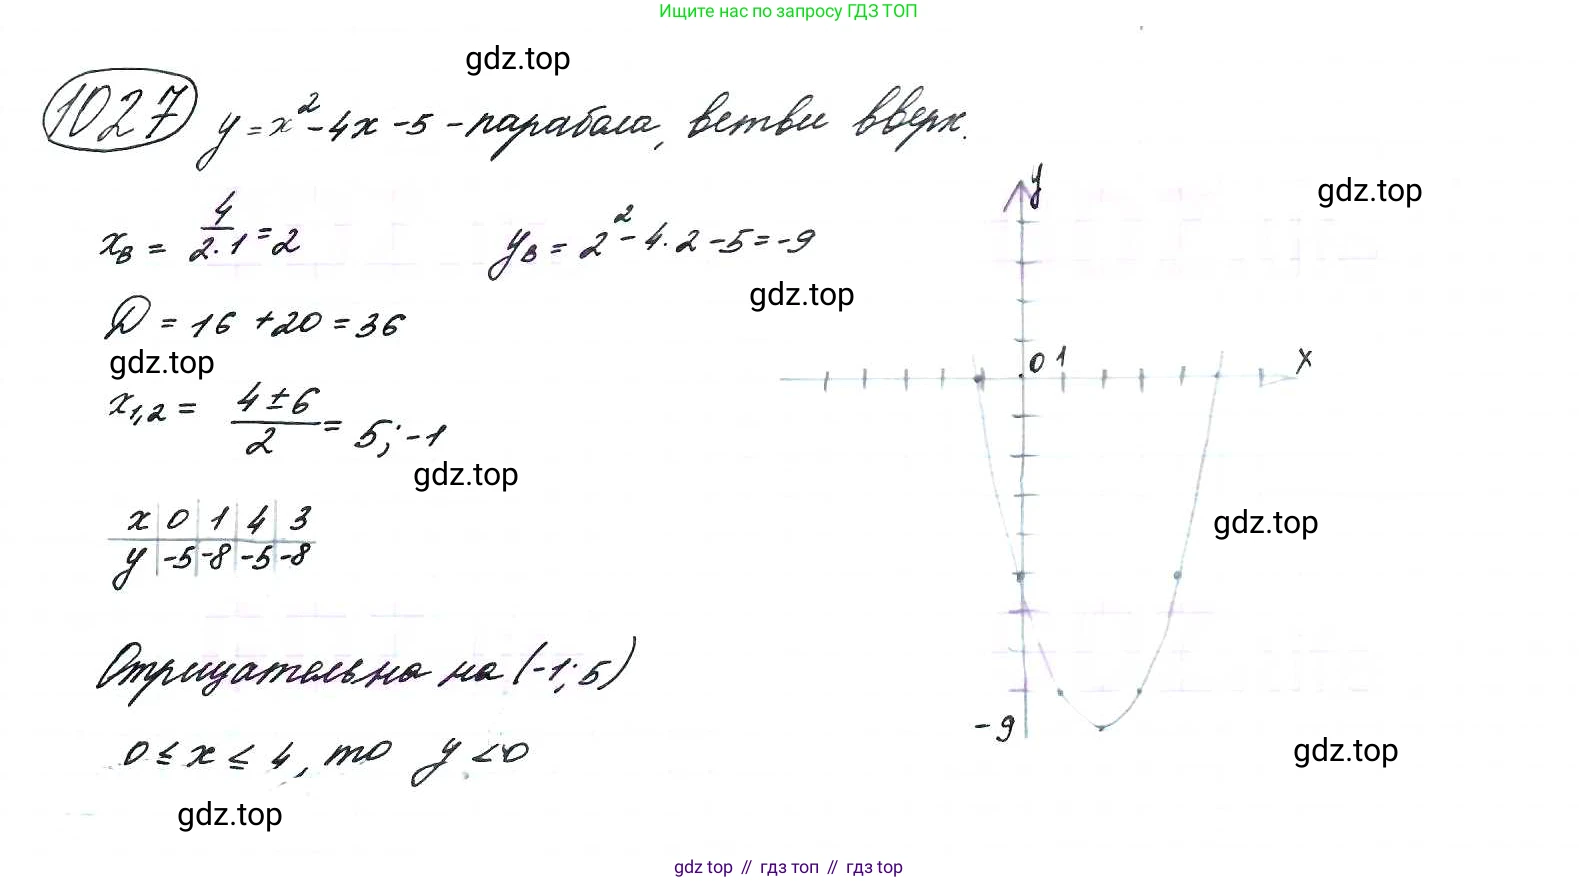 Ищите нас по запросу ГДЗ ТОП
gdz.top
1027 y = x² - 4x - 5 - парабола, ветви вверх.
gdz.top
y
x_в = 4/(2·1) = 2 y_в = 2² - 4·2 - 5 = -9
gdz.top
D = 16 + 20 = 36
0 1 x
gdz.top
x_1,2 = (4 ± 6)/2 = 5; -1
gdz.top
x 0 1 4 3
gdz.top
y -5 -8 -5 -8
Отрицательна на (-1; 5)
-9
0 ≤ x ≤ 4, то y < 0
gdz.top
gdz.top
gdz top // гдз топ // гдз top